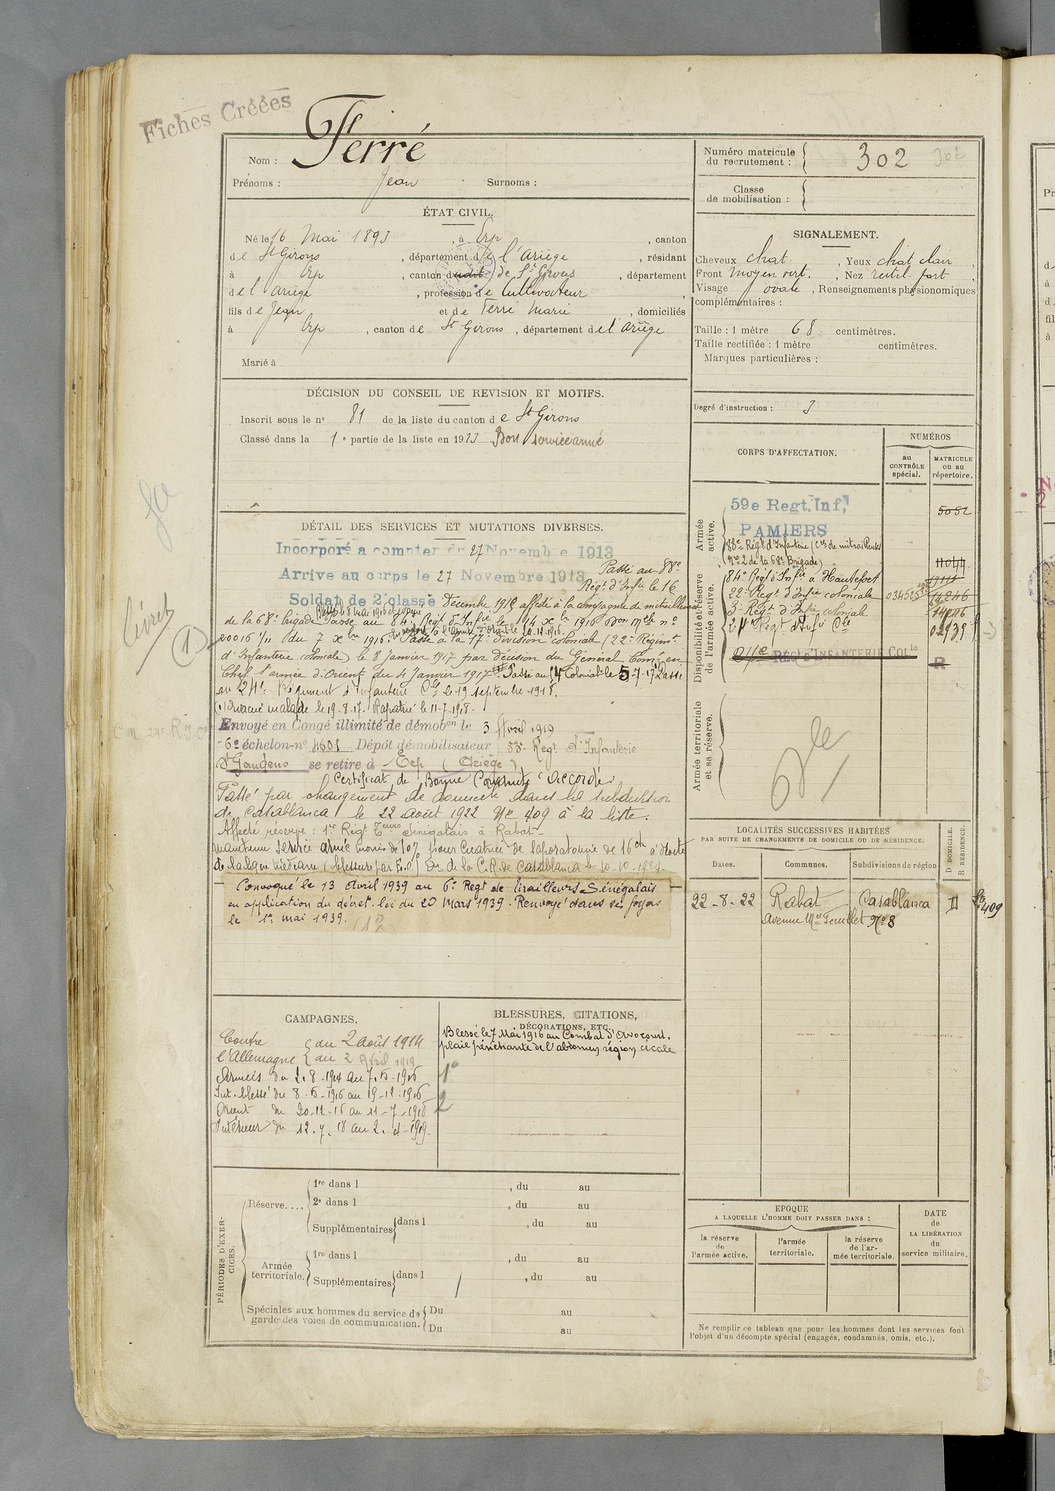 Fiches Créées
Nom : Ferré
Prénoms : Jean Surnoms :
Numéro matricule
du recrutement : 302
Classe
de mobilisation :
ÉTAT CIVIL.
Né le 16 Mai 1893, à Erp, canton
de St Girons, département de l'Ariège, résidant
à Erp, canton dudit de St Girons, département
de l'Ariège, profession de Cultivateur
fils de Jean et de Ferré Marie, domiciliés
à Erp, canton de St Girons, département de l'Ariège
Marié à
SIGNALEMENT.
Cheveux chat., Yeux chat clair,
Front moyen vert., Nez rectil fort
Visage ovale, Renseignements physionomiques
complémentaires :
Taille : 1 mètre 68 centimètres.
Taille rectifiée : 1 mètre centimètres.
Marques particulières :
Degré d'instruction : 3
DÉCISION DU CONSEIL DE REVISION ET MOTIFS.
Inscrit sous le no 81 de la liste du canton de St Girons
Classé dans la 1e partie de la liste en 1913 Bon service armé
DÉTAIL DES SERVICES ET MUTATIONS DIVERSES.
Incorporé a compter du 27 Novembre 1913
Arrive au corps le 27 Novembre 1913 Passé au 88e
Soldat de 2e classe Régt d'Infie le 16
Décembre 1915 affecté à la compagnie de mitrailleuses
de la 68e brigade Passé au 84e Régt d'Infie le 14 Xbre 1916 Bon Mle no
20016 1/11 du 7 Xbre 1916. Passé à la 17e division coloniale (22e Régiment
d'Infanterie coloniale) le 8 Janvier 1917 par décision du Général Comt en
Chef l'armée d'Orient du 4 Janvier 1917 Passé au 3e Colonial le 5-7-17 Passé
au 24e Régiment d'Infanterie Cle le 19 septembre 1918.
(1) Evacué malade le 19.8.17. Rapatrié le 11-7-1918-
Envoyé en Congé illimité de démobon le 3 Avril 1919
-6e échelon-no 4601 Dépôt démobilisateur 88e Régt d'Infanterie
St Gaudens se retire à Erp (Ariège)
Certificat de Bonne Conduite "Accordé"
Passé par changement de domicile dans la subdivision
de Casablanca le 22 août 1922 No 409 à la liste.
Affecté réserve : 1er Régt Teurs Sénégalais à Rabat-
maintenu service armé moins de 10% pour cicatrice de laparotomie de 16 cm à droite
de la ligne médiane (blessure par E.O.) Don de la C.R. de Casablanca le 10.10.1924.
Convoqué le 13 Avril 1939 au 6e Regt de Tirailleurs Sénégalais
en application du décret-loi du 20 Mars 1939. Renvoyé dans ses foyers
le 1er mai 1939.
livret
1
CORPS D'AFFECTATION.
NUMÉROS
au
CONTRÔLE
spécial.
MATRICULE
ou au
répertoire.
Armée
active.
59e Regt. Inf,
PAMIERS
5052
88e Régt d'Infanterie (Cie de mitrailleuses
No 2 de la 68e Brigade)
Disponibilité et réserve
de l'armée active.
84e Régt d'Infie à Hautefort
22e Régt d'Infie coloniale
3e Régt d'Infie coloniale
24e Regt d'Infie Cle
RÉGt D'INFANTERIE COLle
R
Armée territoriale
et sa réserve.
LOCALITÉS SUCCESSIVES HABITÉES
PAR SUITE DE CHANGEMENTS DE DOMICILE OU DE RÉSIDENCE.
D. DOMICILE.
R. RÉSIDENCE.
Dates. Communes. Subdivisions de région
22-8-22 Rabat Casablanca D
409
CAMPAGNES.
Contre du 2 août 1914
l'Allemagne au 2 Avril 1919
Armées du 2.8-1914 au 7.5-1916
Int. blessé du 8-5-1916 au 19-12-1916
Orient du 20-12-16 au 11-7-1918
Intérieur du 12.7.18 au 2.4-1919.
BLESSURES, CITATIONS,
DÉCORATIONS, ETC.
Blessé le 7 Mai 1916 au Combat d'Avocourt.
plaie pénétrante de l'abdomen région cécale
PÉRIODES D'EXERCICES.
Réserve....
1re dans l, du au
2e dans l, du au
Supplémentaires dans l, du au
Armée
territoriale.
1re dans l, du au
Supplémentaires dans l, du au
Spéciales aux hommes du service de
garde des voies de communication.
Du au
Du au
EPOQUE
A LAQUELLE L'HOMME DOIT PASSER DANS :
la réserve
de
l'armée active.
l'armée
territoriale.
la réserve
de l'ar-
mée territoriale.
DATE
de
LA LIBÉRATION
du
service militaire.
Ne remplir ce tableau que pour les hommes dont les services font
l'objet d'un décompte spécial (engagés, condamnés, omis, etc.).